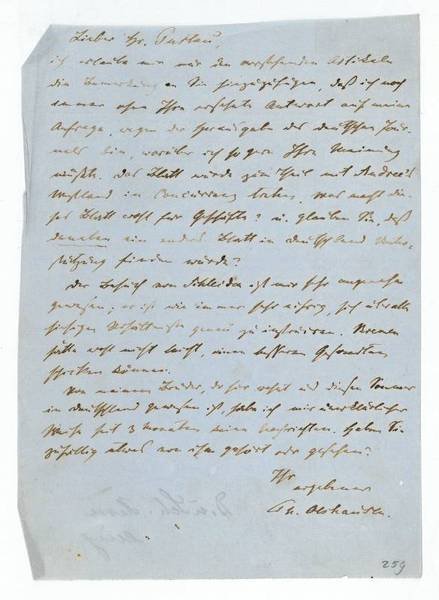 Lieber Hr. Puttau,
ich erlaube mir nur den vorstehenden Artikeln
die Bemerkung an Sie hinzuzufügen, daß ich noch
immer ohne Ihre ersehnte Antwort auf meine
Anfrage wegen der Herausgabe des deutschen Jour-
nals bin, worüber ich so gern Ihre Meinung
wüßte. Das Blatt würde zum Theil mit Andree's
Westland in Concurrenz treten. Was macht die-
ses Blatt wohl für Geschäfte? u. glauben Sie, daß
daneben ein andres Blatt in Deutschland Unter-
stützung finden würde?
Der Besuch von Schleiden ist mir sehr angenehm
gewesen, er ist wie immer sehr eifrig, sich über alle
hiesigen Verhältnisse genau zu instruiren. Bremen
hätte wohl nicht leicht einen besseren Gesandten
schicken können.
Von meinem Bruder, der hier wohnt und diesen Sommer
in Deutschland gewesen ist, habe ich mir unerklärlicher
Weise seit 3 Monaten keine Nachrichten. Haben Sie
zufällig etwas von ihm gehört oder gesehen?
Ihr
ergebener
Th. Olshausen.
259